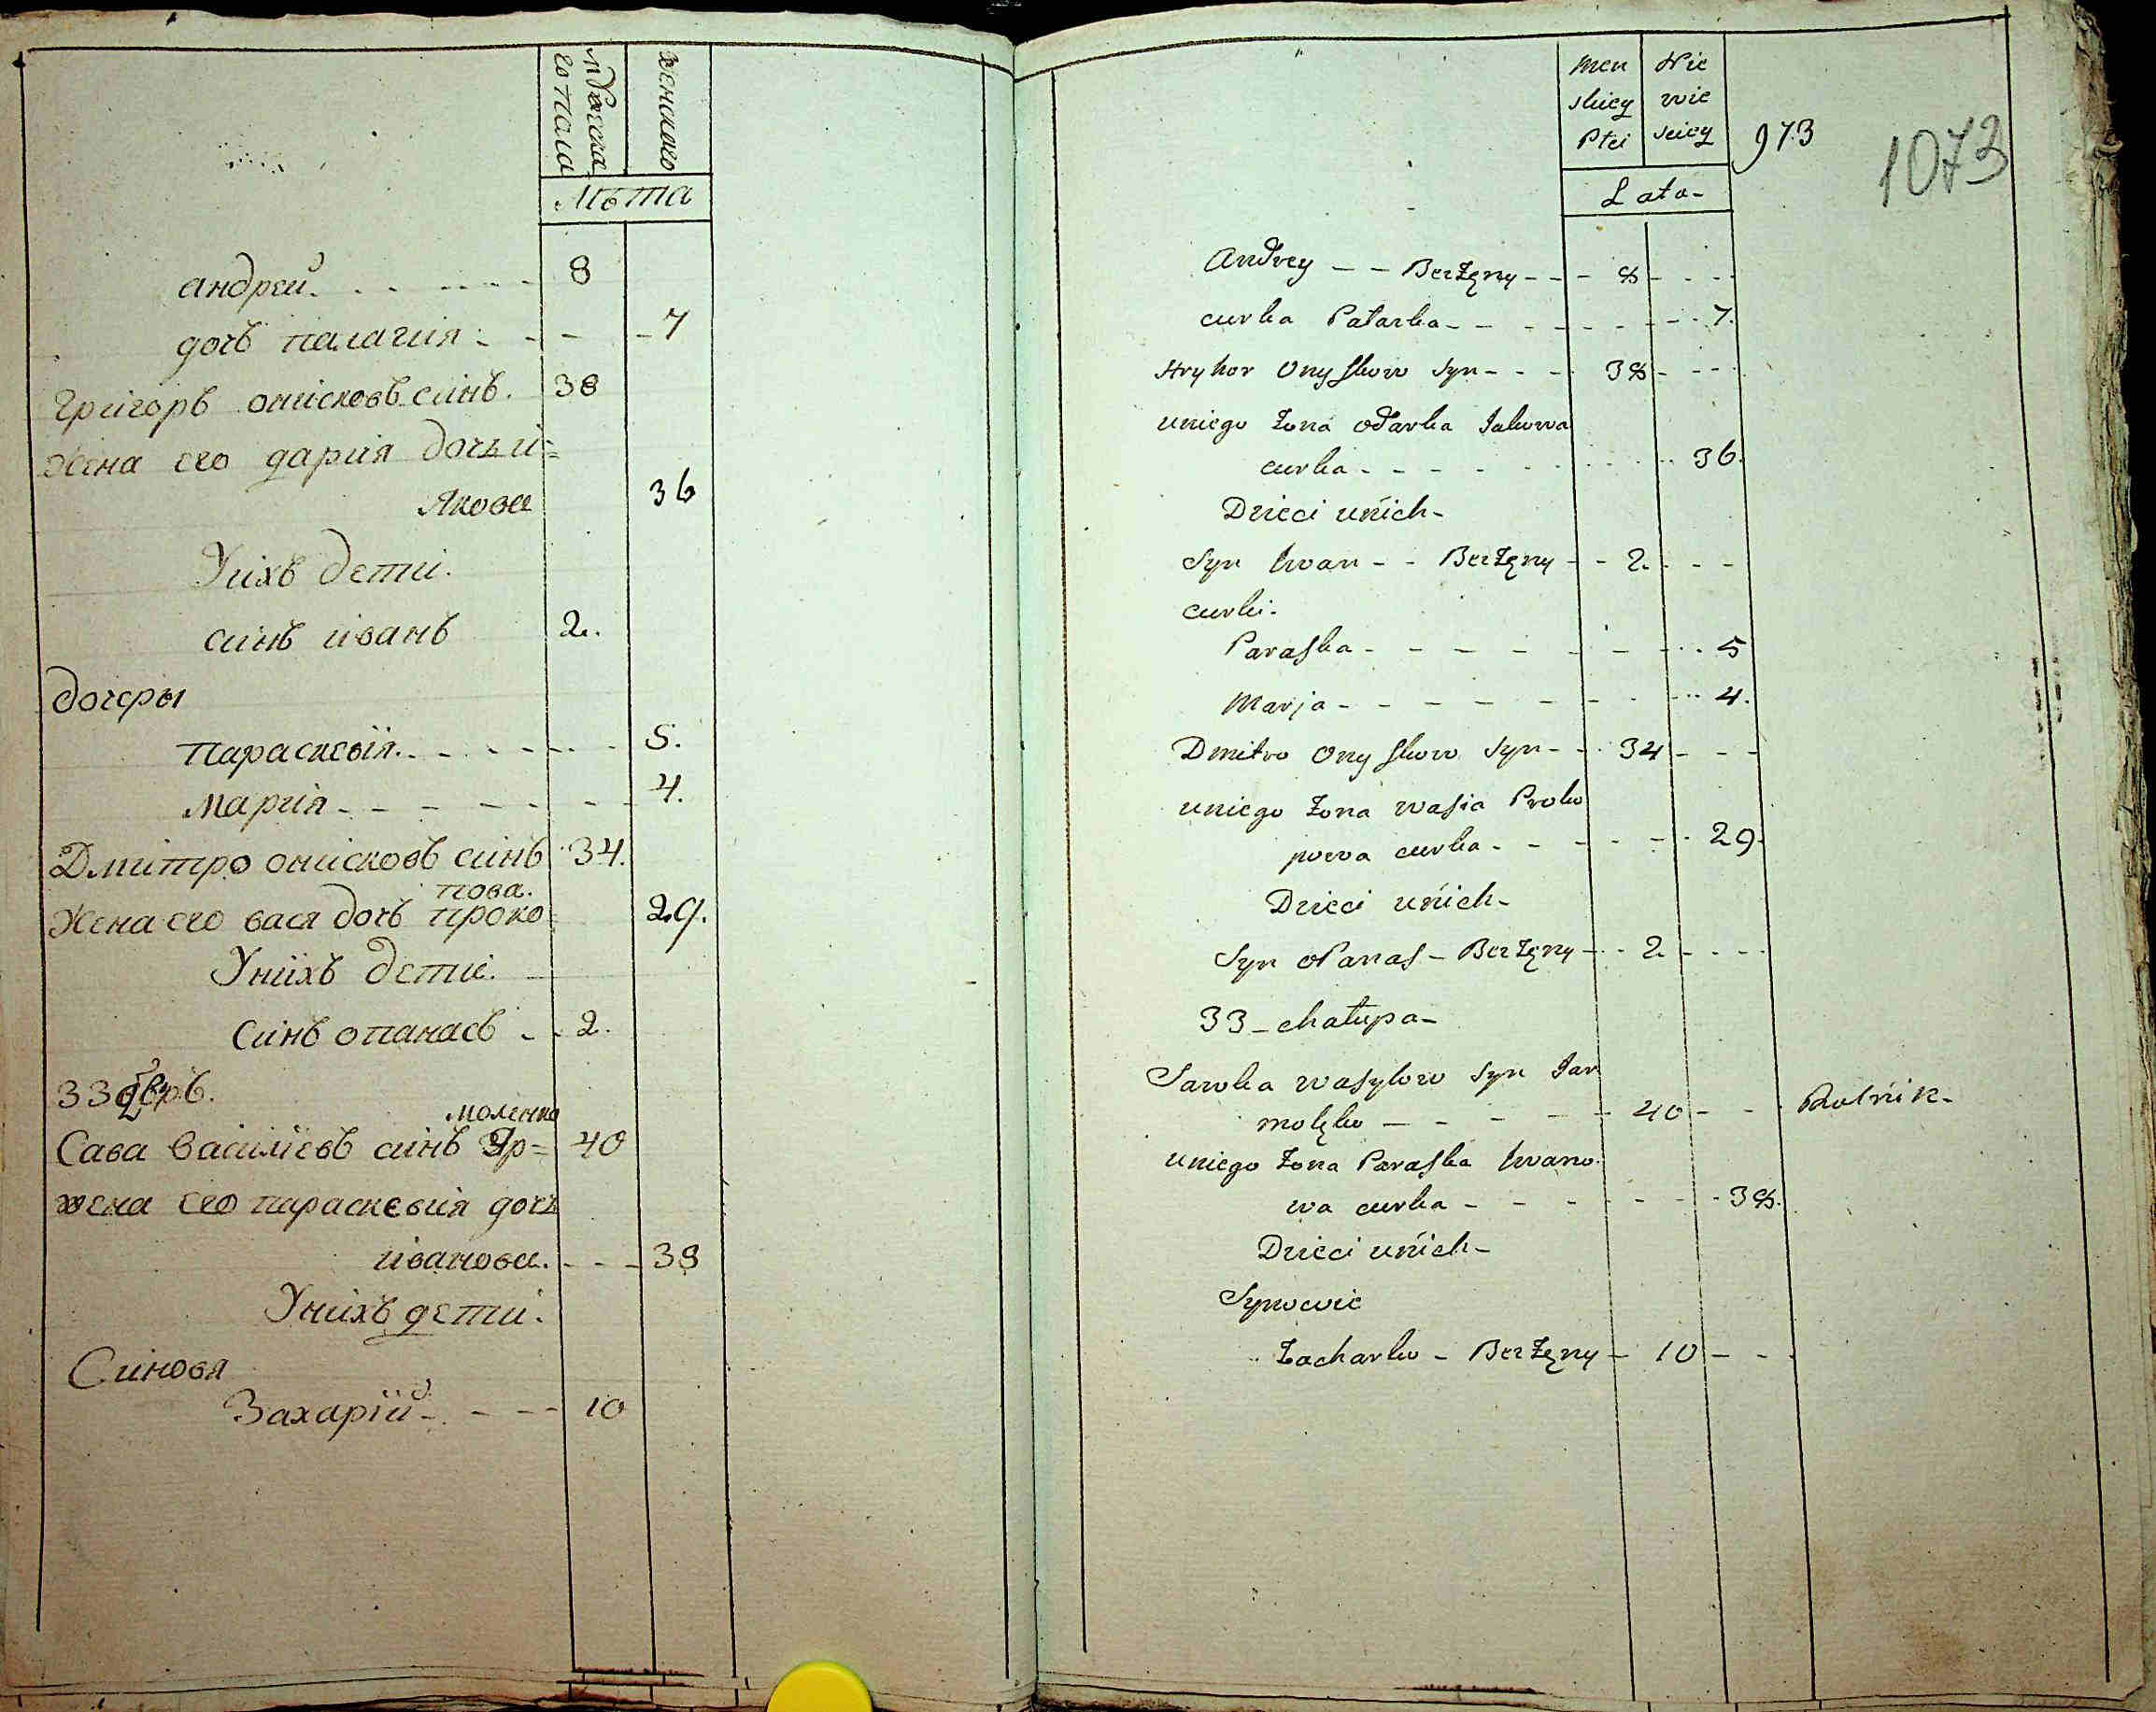 мужеска
го пола
женского
Лѣта
андрей 8
дочь палагия 7
Григорь онисковъ синъ. 38
жена его дария дочь и=
Якова 36
Уихъ дети.
синъ иванъ 2.
дочеры
параскевїя. 5.
мария 4.
Дмитро онисковъ синъ 34.
пова.
жена его вася дочь проко 29.
Унихъ дети.
Синъ опанасъ 2.
33 дворъ.
моленко
Сава василїевъ синъ Яр= 40
жена его параскевия дочь
иванова. 38
Унихъ дети.
Синовя
Захарїй 10
men Nie
skiey wie
Płci skiey 973 1073
Lata
Andrey - - Bezżęny - - 8
curka Pałaska - - 7.
Hryhor Onyskow Syn - - 38
uniego żona Odarka Jakowa
curka - - 36.
Dzieci unich -
Syn Iwan - - Bezżęny - - 2
curki.
Paraska - - 5
Marja - - 4.
Dmitro Onyskow Syn - - 34
uniego żona Wasia Proko
powa curka - - 29.
Dzieci unich -
Syn Opanas - Bezżęny - - 2
33 - chałupa -
Sawka Wasylow Syn Jar
molęko - - 40 - - Rolnik -
uniego żona Paraska Iwano
wa curka - - 38.
Dzieci unich -
Synowie
Zacharko - Bezżęny - 10 - -